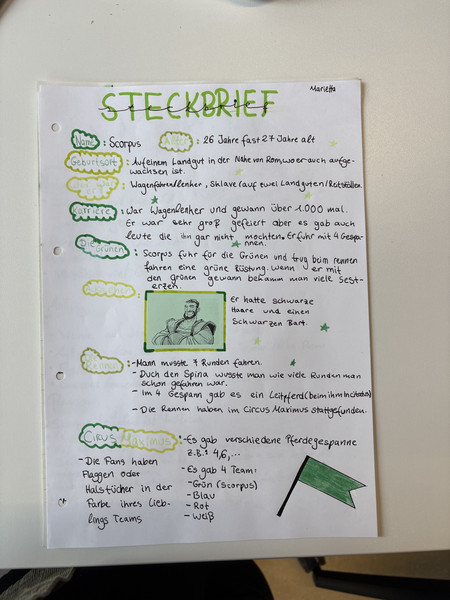 Marietta
STECKBRIEF
Steckbrief
Name : Scorpus Alter : 26 Jahre fast 27 Jahre alt
Geburtsort : Auf einem Landgut in der Nähe von Rom, wo er auch aufge-
wachsen ist.
: Wagenfahrer/lenker, Sklave (auf zwei Landguten/Reitställen
Karriere : War Wagenlenker und gewann über 1.000 mal.
Er war sehr groß gefeiert aber es gab auch
leute die ihn gar nicht mochten. Er fuhr mit 4 Gespan-
nen.
Die Grünen : Scorpus fuhr für die Grünen und trug beim rennen
fahren eine grüne Rüstung. Wenn er mit
den grünen gewann bekamm man viele Sest-
erzen.
Er hatte schwarze
Haare und einen
Schwarzen Bart.
: -Mann musste 7 Runden fahren.
- Duch den Spina wusste man wie viele Runden man
schon gefahren war.
- Im 4 Gespann gab es ein Leitpferd (beim ihm Inchatos)
- Die Rennen haben im Circus Maximus stattgefunden.
Cirus Maximus : -Es gab verschiedene Pferdegespanne
z.B.: 4,6,...
- Die Fans haben
Flaggen oder
Halstücher in der
Farbe ihres Lieb-
lings Teams
- Es gab 4 Team:
-Grün (Scorpus)
- Blau
- Rot
- Weiß